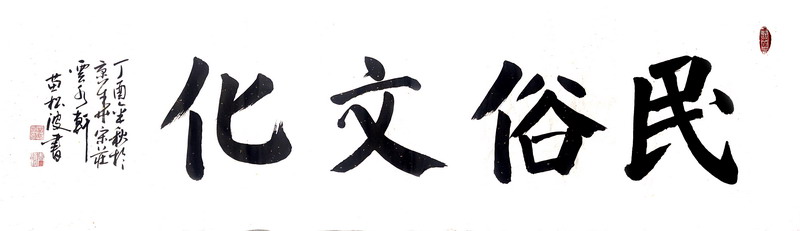 民俗文化
丁酉年秋於
京東宋莊
雲水軒
苗松波書